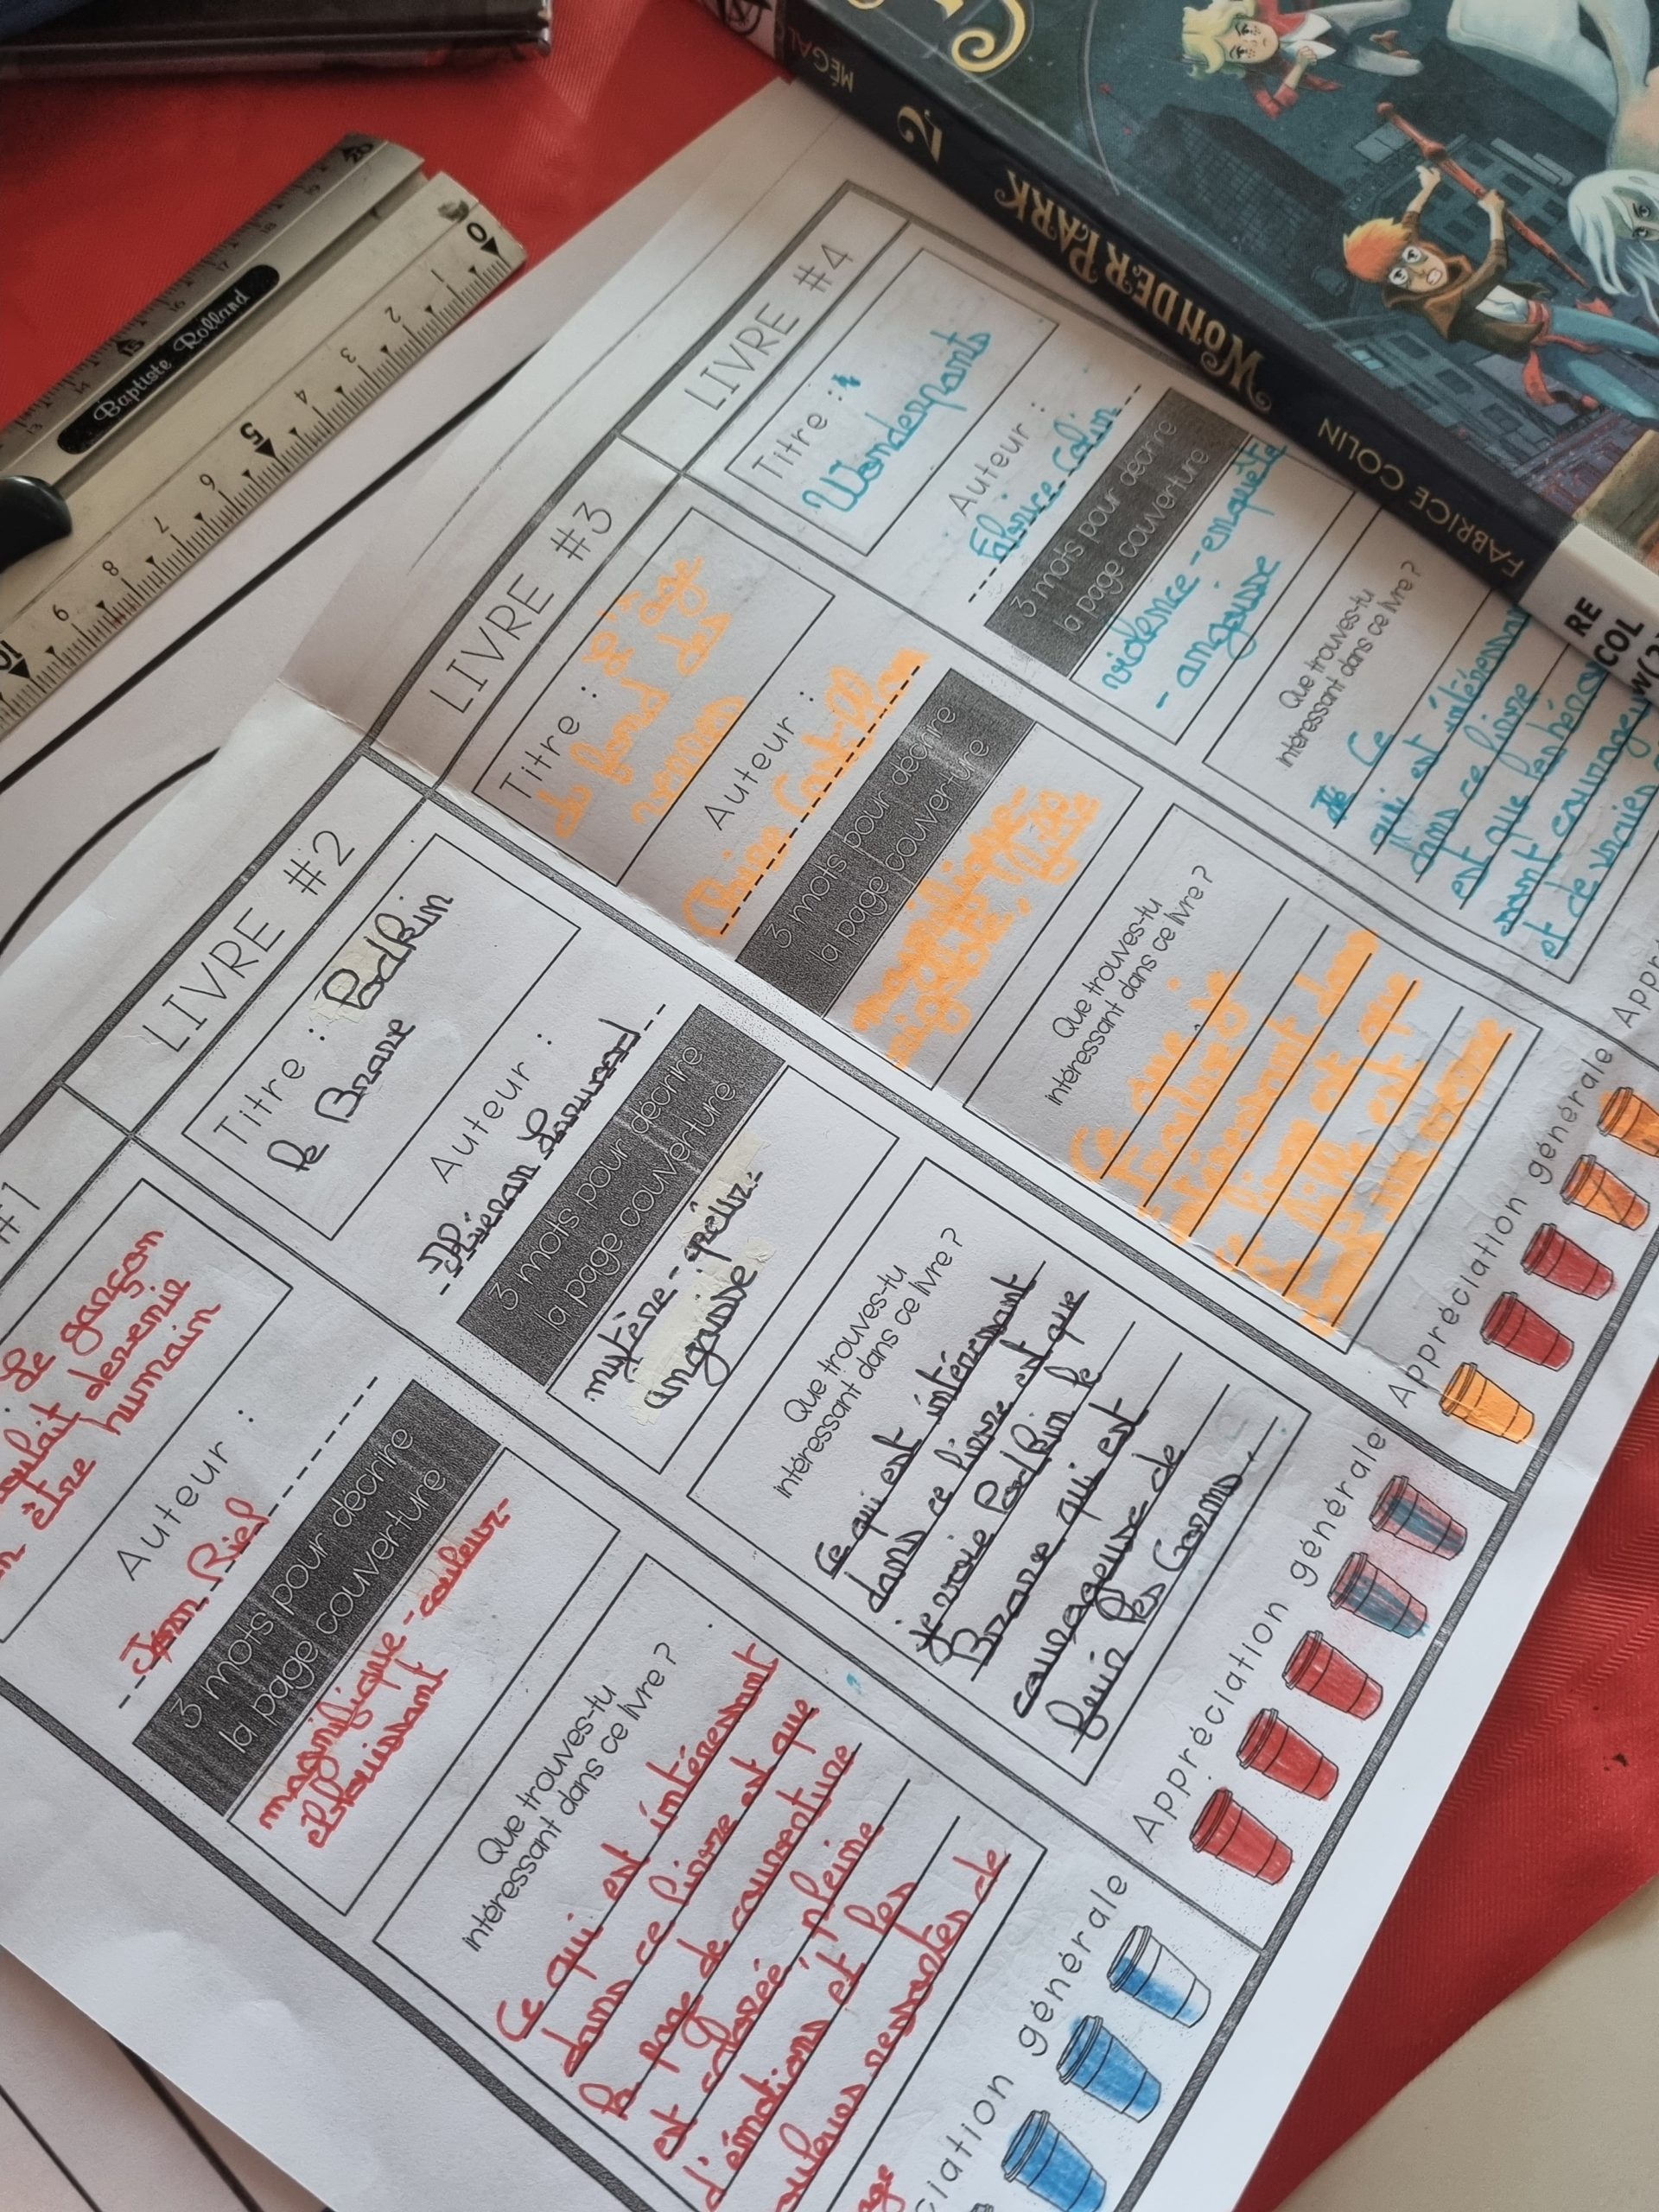 Baptiste Rolland
20
19
17
16
15
14
13
0
1
2
3
4
5
6
7
8
9
10
MÉGALO
2
WONDERPARK
FABRICE COLIN
RE
COL
W(2
#1
Le garçon
voulait devenie
être humain
Auteur :
Jean Riel
3 mots pour décrire
la page couverture
magnifique - couleur-
éblouissant
Que trouves-tu
intéressant dans ce livre ?
Ce qui est intéressant
dans ce livre est que
la page de couverture
est coloreé, pleine
d'émotions et les
ressortes de
ciation générale
LIVRE #2
Titre : Podkin
le Brave
Auteur :
Kieran Larwood
3 mots pour décrire
la page couverture
mytère - peur -
angoisse
Que trouves-tu
intéressant dans ce livre ?
Ce qui est intéressant
dans ce livre est que
je voie Podkin le
Brave qui est
courageuse de
fuir les Gorms.
Appréciation générale
LIVRE #3
Titre : L'âge
du fond des
verres
Auteur :
Claire Castillon
3 mots pour décrire
la page couverture
magnifique-
Que trouves-tu
intéressant dans ce livre ?
Ce que je
trouve
intéressant dans
ce livre est que
la fille est
Appréciation générale
LIVRE #4
Titre :
Wonderpants
Auteur :
Fabrice Colin
3 mots pour décrire
la page couverture
violence - enquête
- angoisse
Que trouves-tu
intéressant dans ce livre ?
Ce
qui est intéressant
dans ce livre
est que les héros
sont courrangeux
et de vraies
Appr